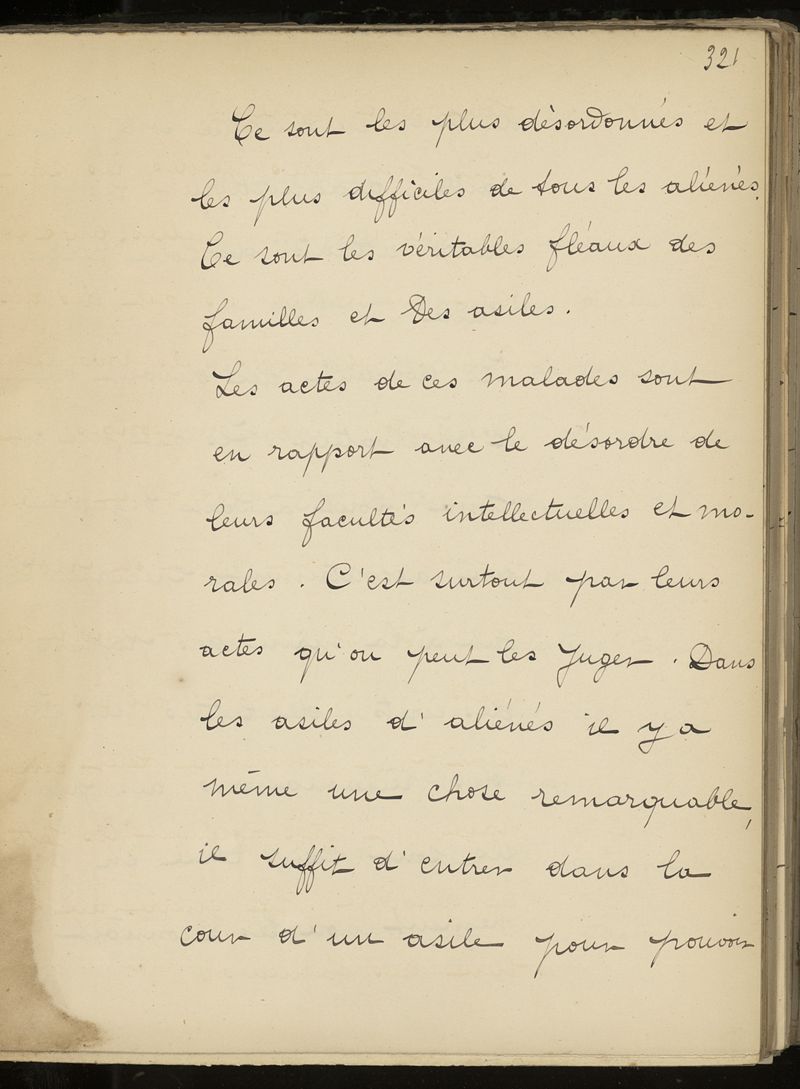 321
Ce sont les plus désordonnés et
les plus difficiles de tous les aliénés.
Ce sont les véritables fléaux des
familles et des asiles.
Les actes de ces malades sont
en rapport avec le désordre de
leurs facultés intellectuelles et mo-
rales. C'est surtout par leurs
actes qu'on peut les juger. Dans
les asiles d'aliénés il y a
même une chose remarquable,
il suffit d'entrer dans la
cour d'un asile pour pouvoir